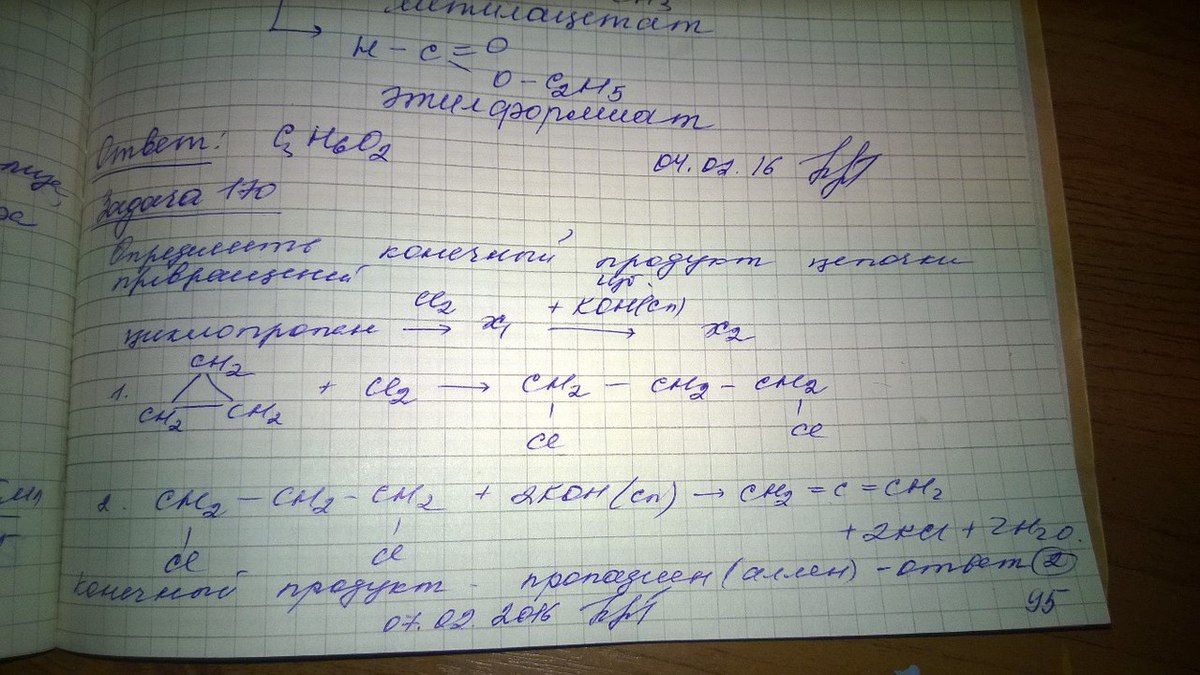 метилацетат
H - C = O
O - C2H5
этилформиат
Ответ: C3H6O2
04.02.16
Задача 170
Определить конечный продукт цепочки
превращений
циклопропан Cl2 → x1 + KOH(сп) изб. → x2
1. CH2 CH2 CH2 + Cl2 → CH2 - CH2 - CH2
Cl Cl
2. CH2 - CH2 - CH2 + 2KOH (сп) → CH2 = C = CH2
Cl Cl + 2KCl + 2H2O.
конечный продукт - пропадиен (аллен) - ответ 2
07.02.2016
95